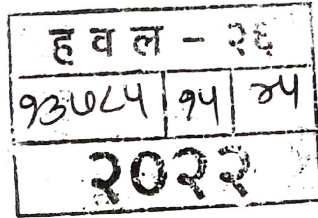 ह व ल - २६
१३७८५ | १५ | २५
२०२२